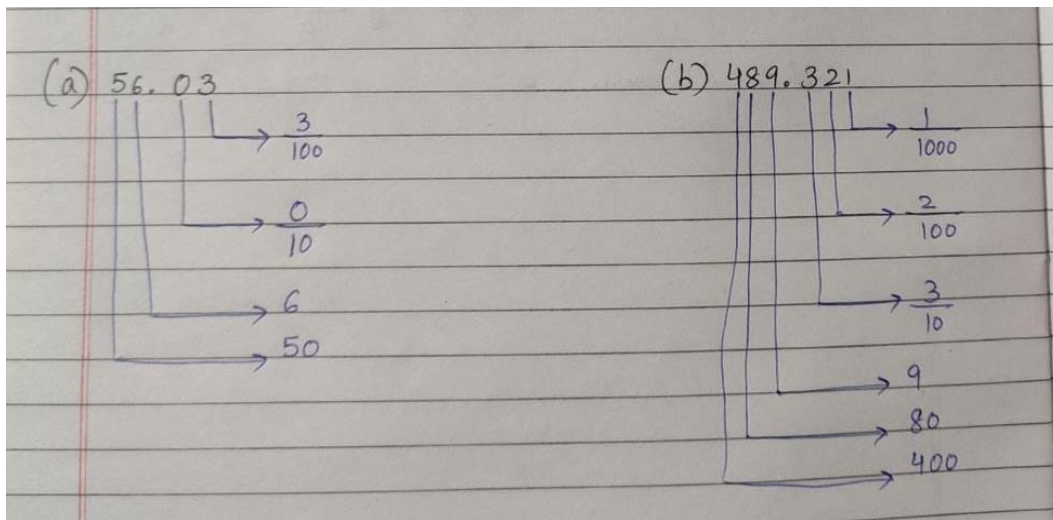 (a) 56.03
3/100
0/10
6
50
(b) 489.321
1/1000
2/100
3/10
9
80
400